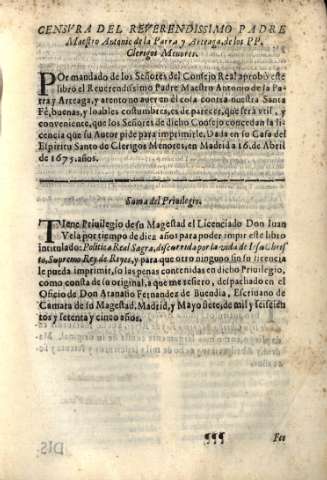 CENSVRA DEL REVERENDISSIMO PADRE
Maestro Antonio de la Parra y Arteaga, de los PP.
Clerigos Menores.
POr mandado de los Señores del Consejo Real aprobò este
libro el Reverendissimo Padre Maestro Antonio de la Pa-
rra y Arteaga, y atento no aver en èl cosa contra nuestra Santa
Fè, buenas, y loables costumbres, es de parecer, que serà vtil, y
conveniente, que los Señores de dicho Consejo concedan la li-
cencia que su Autor pide para imprimirle. Dada en su Casa del
Espiritu Santo de Clerigos Menores, en Madrid a 16. de Abril
de 1675. años.
Suma del Priuilegio.
TIene Priuilegio de su Magestad el Licenciado Don Iuan
Vela por tiempo de diez años para poder imprimir este libro
intitulado: Politica Real Sagra, discurrida por la vida de Iesu Chris-
to, Supremo Rey de Reyes, y para que otro ninguno sin su licencia
le pueda imprimir, so las penas contenidas en dicho Priuilegio,
como consta de su original, a que me refiero, despachado en el
Oficio de Don Atanasio Fernandez de Buendia, Escriuano de
Camara de su Magestad, Madrid, y Mayo siete, de mil y seiscien-
tos y setenta y cinco años.
¶¶¶ Fee